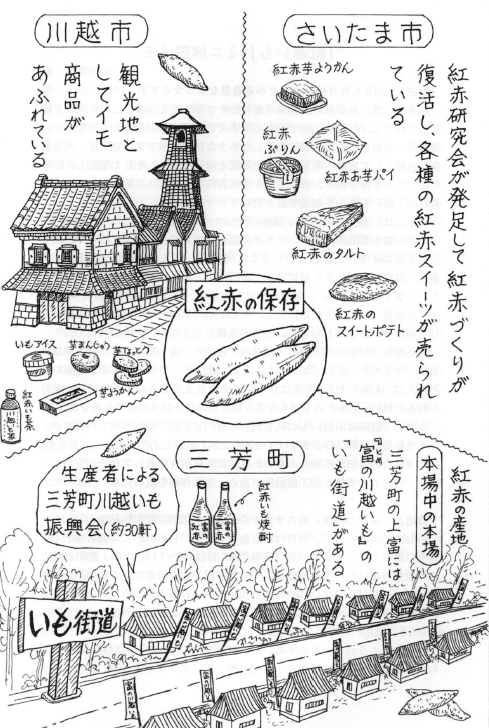 さいたま市
紅赤研究会が発足して紅赤づくりが
復活し、各種の紅赤スイーツが売られ
ている
紅赤芋ようかん
紅赤
ぷりん
紅赤お芋パイ
紅赤のタルト
紅赤の
スイートポテト
川越市
観光地と
してイモ
商品が
あふれている
いもアイス
芋まんじゅう
芋なっとう
芋ようかん
紅赤いも茶
川越いも茶
紅赤の保存
三芳町
紅赤の産地
本場中の本場
三芳町の上富には
『富の川越いも』の
いも街道がある
紅赤いも焼酎
富の紅赤
富の紅赤
生産者による
三芳町川越いも
振興会(約30軒)
いも街道